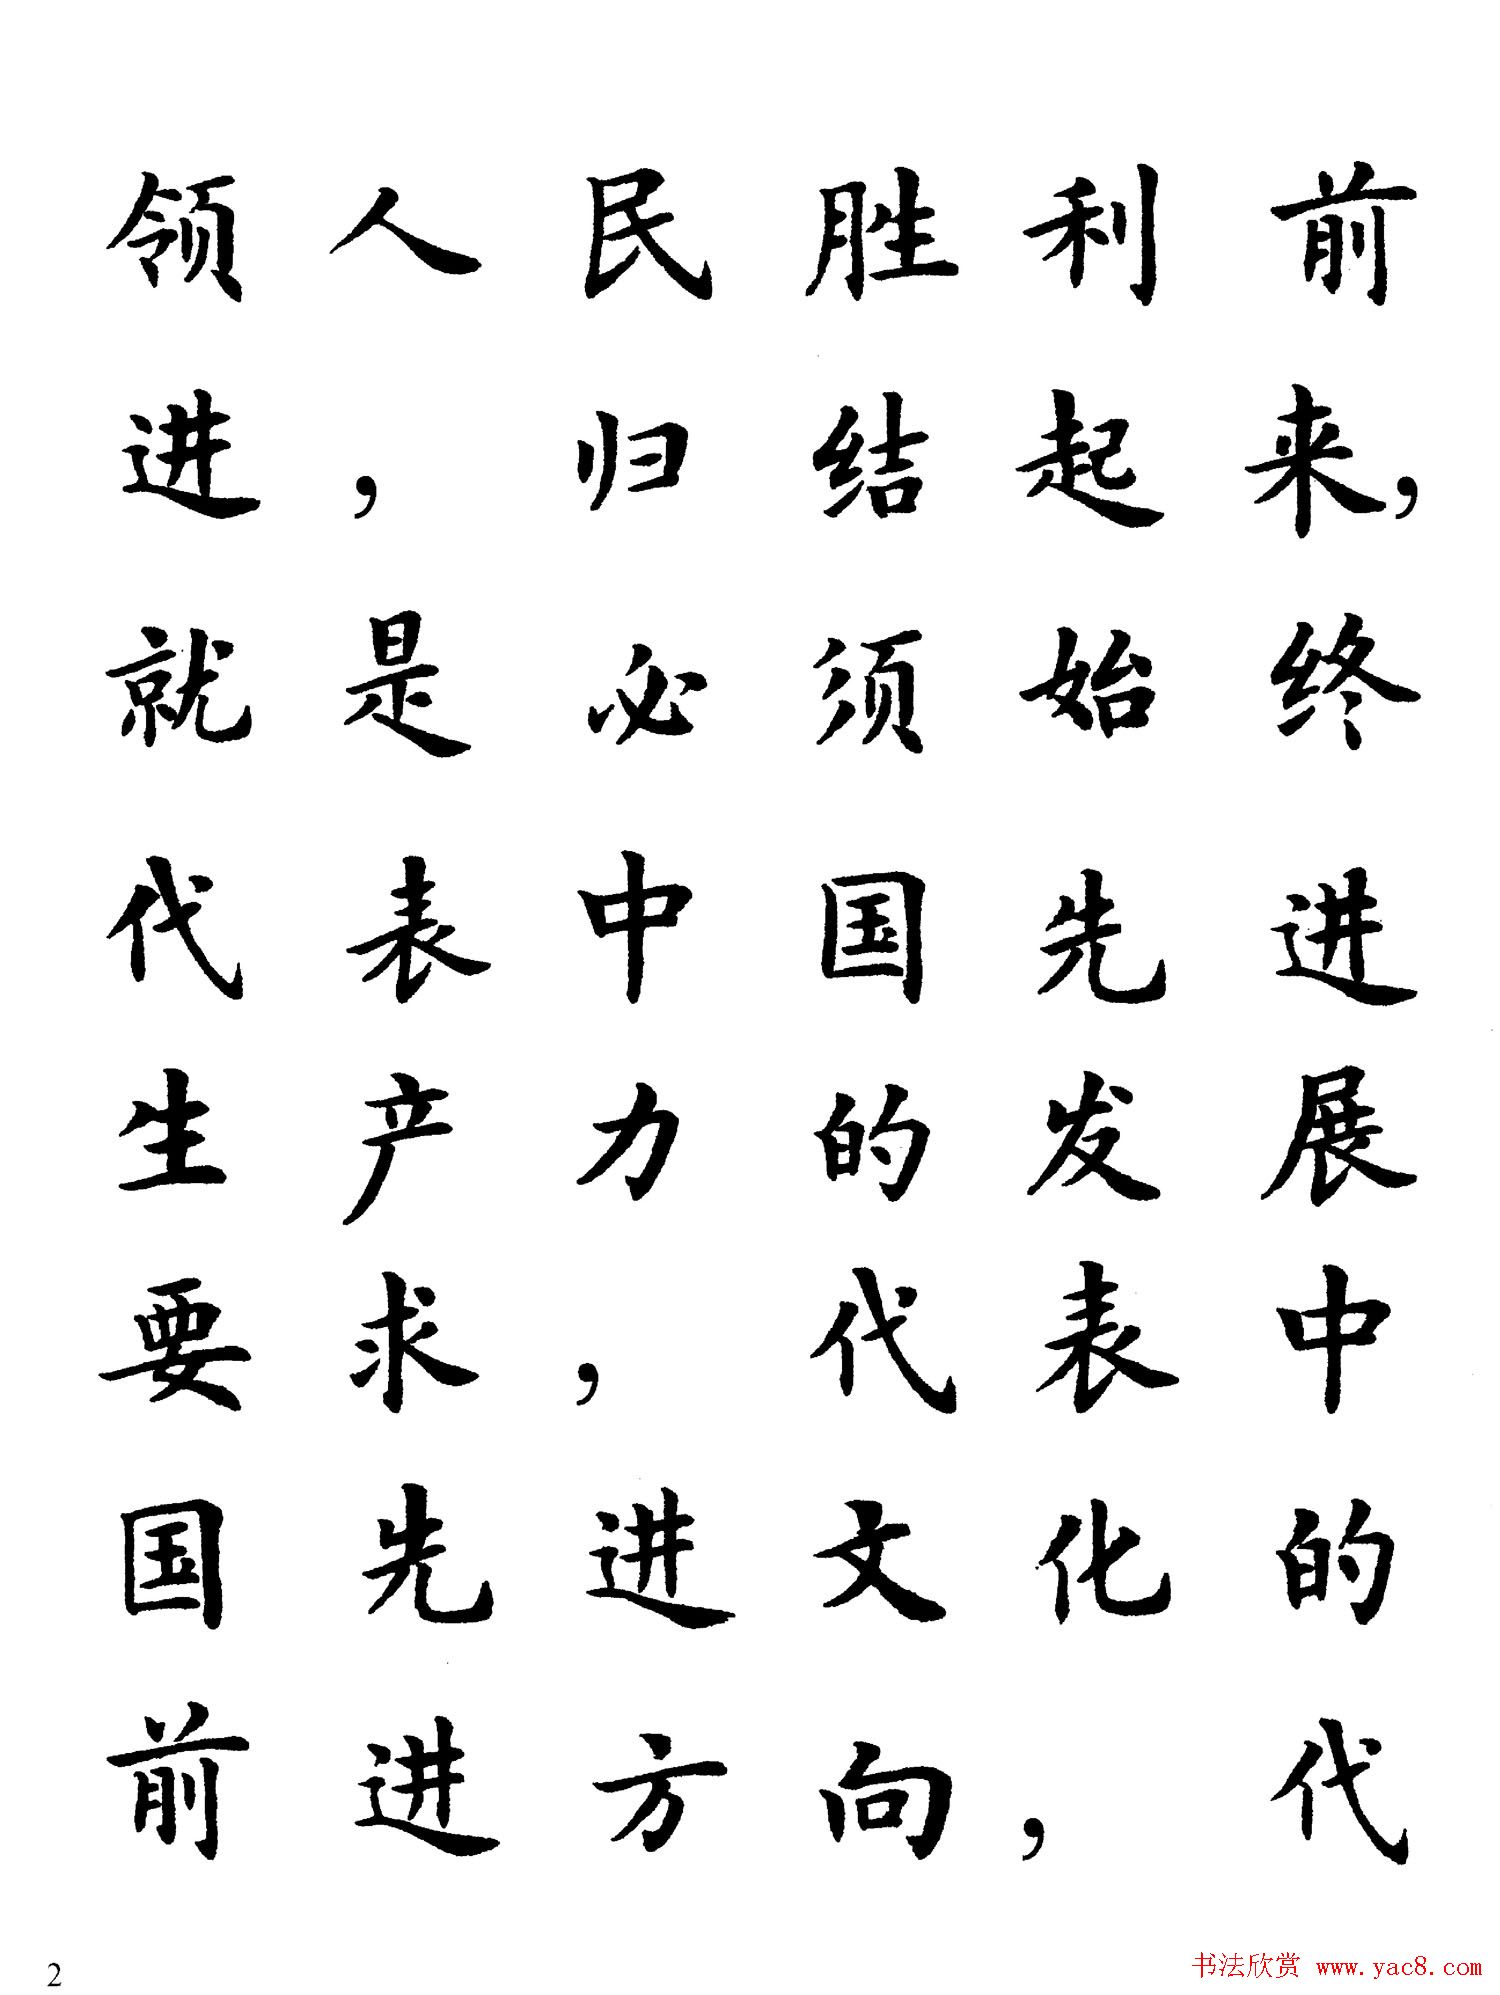 领人民胜利前
进，归结起来，
就是必须始终
代表中国先进
生产力的发展
要求，代表中
国先进文化的
前进方向，代
2
书法欣赏 www.yac8.com